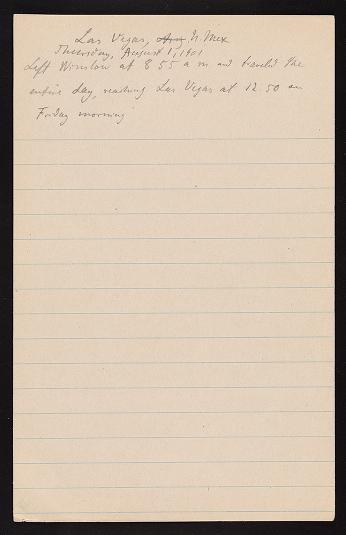 Las Vegas, N Mex
Thursday, August 1, 1901
Left Winslow at 8 55 a m and traveled the
entire day, reaching Las Vegas at 12.50 on
Friday morning